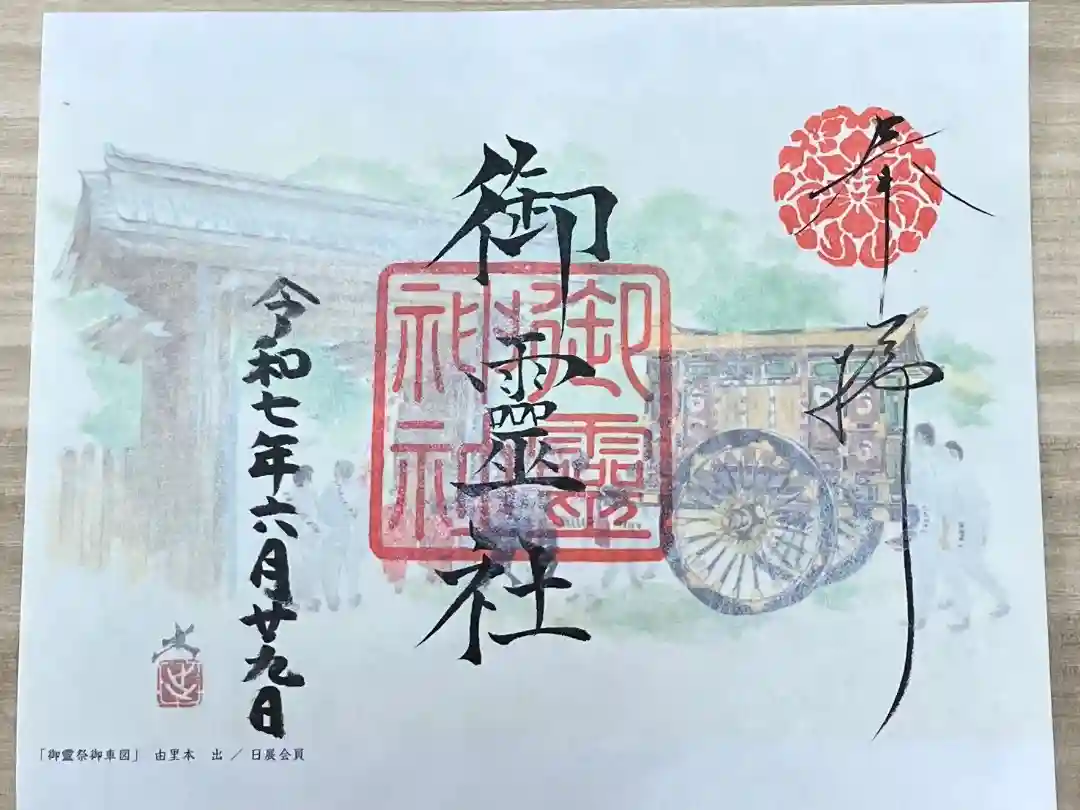 奉拝
御靈社
御靈神社
令和七年六月廿九日
「御靈祭御車図」 由里本 出 ／ 日展会員